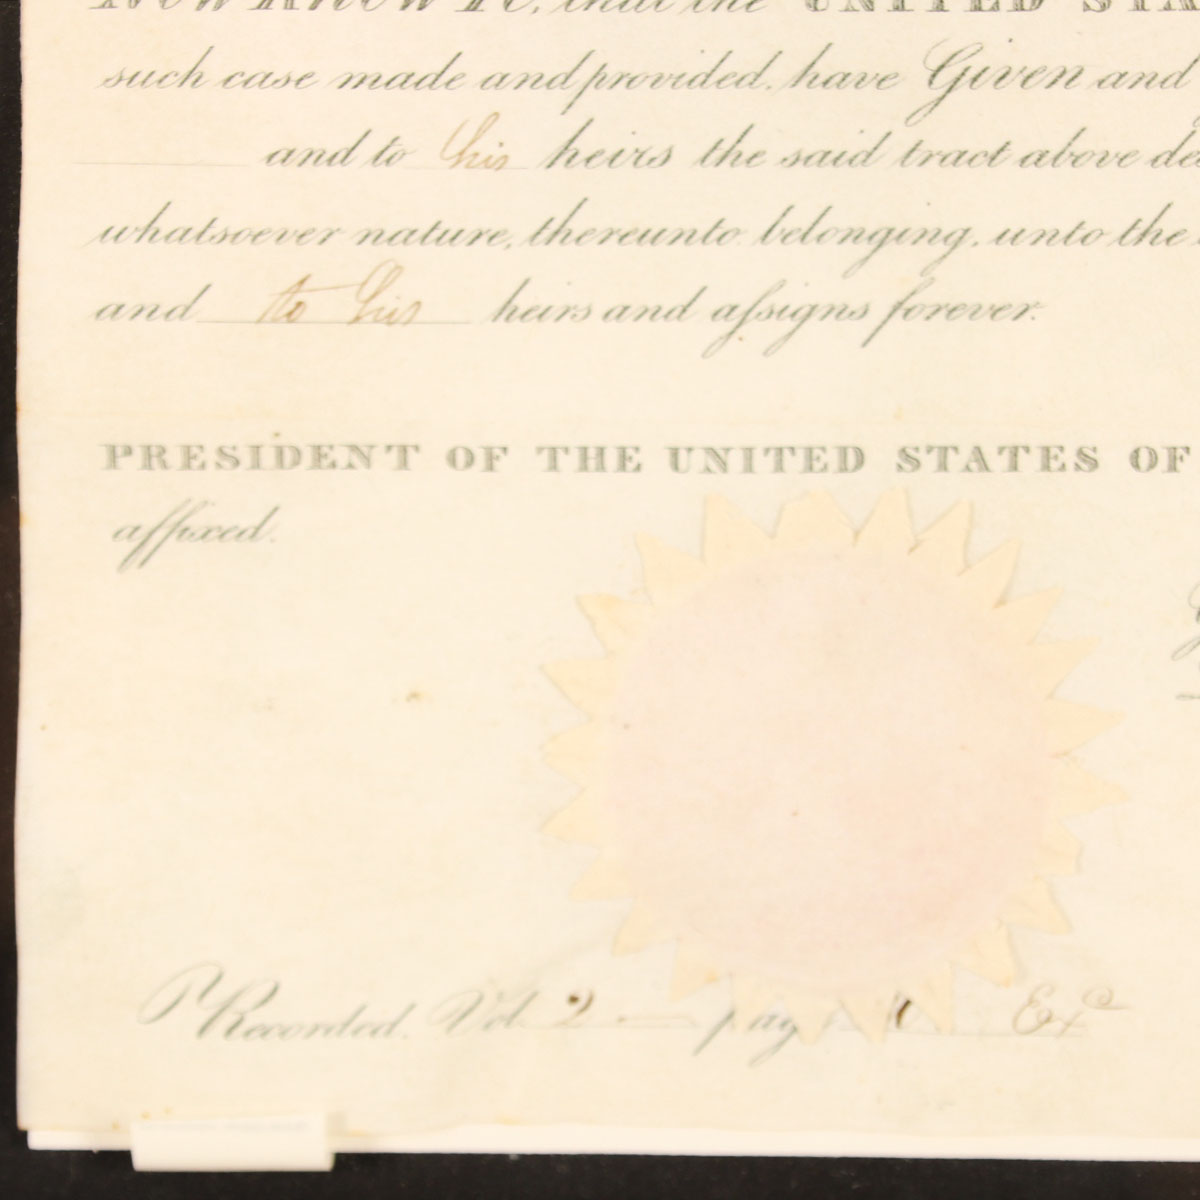 Now Know Ye, that the UNITED STA
such case made and provided. have Given and
and to his heirs the said tract above de
whatsoever nature, thereunto belonging, unto the
and to his heirs and assigns forever.
PRESIDENT OF THE UNITED STATES OF
affixed.
Recorded. Vol 2 pag Exd